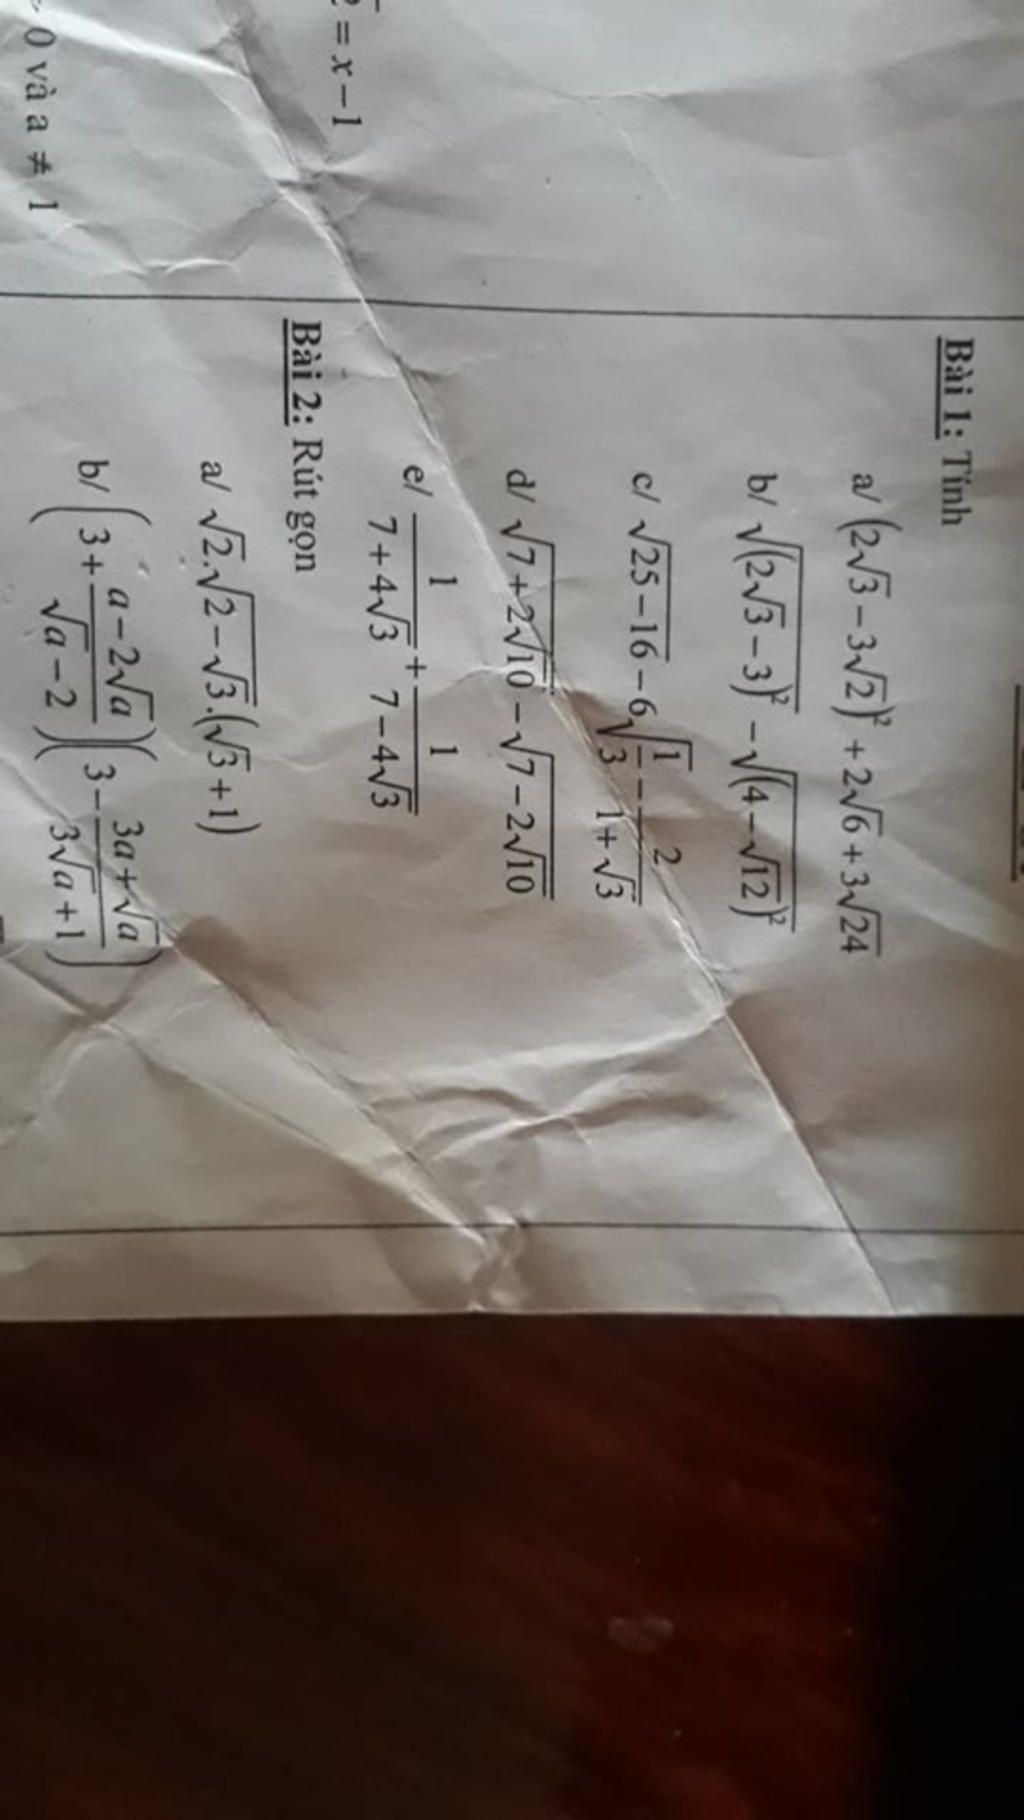 Bài 1: Tính
a/ (2√3 − 3√2)² + 2√6 + 3√24
b/ √(2√3 − 3)² − √(4 − √12)²
c/ √(25 − 16) − 6√(1/3) − 2/(1 + √3)
d/ √(7 + 2√10) − √(7 − 2√10)
e/ 1/(7 + 4√3) + 1/(7 − 4√3)
Bài 2: Rút gọn
a/ √2.√(2 − √3).(√3 + 1)
b/ (3 + (a − 2√a)/(√a − 2))(3 − (3a + √a)/(3√a + 1))
= x − 1
0 và a ≠ 1